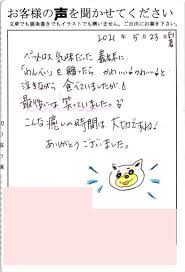 お客様の声を聞かせてください
文章でも箇条書きでもイラストでも構いません。ご自由にお書き下さい。
2021年5月23日
ペットロス気味だった義妹に
「わんべい」を贈ったら、かわいいかわいいと
泣きながら食べていましたが、
最後には笑っていました。
こんな癒しの時間は、大切ですね！
ありがとうございました。
切り取り線